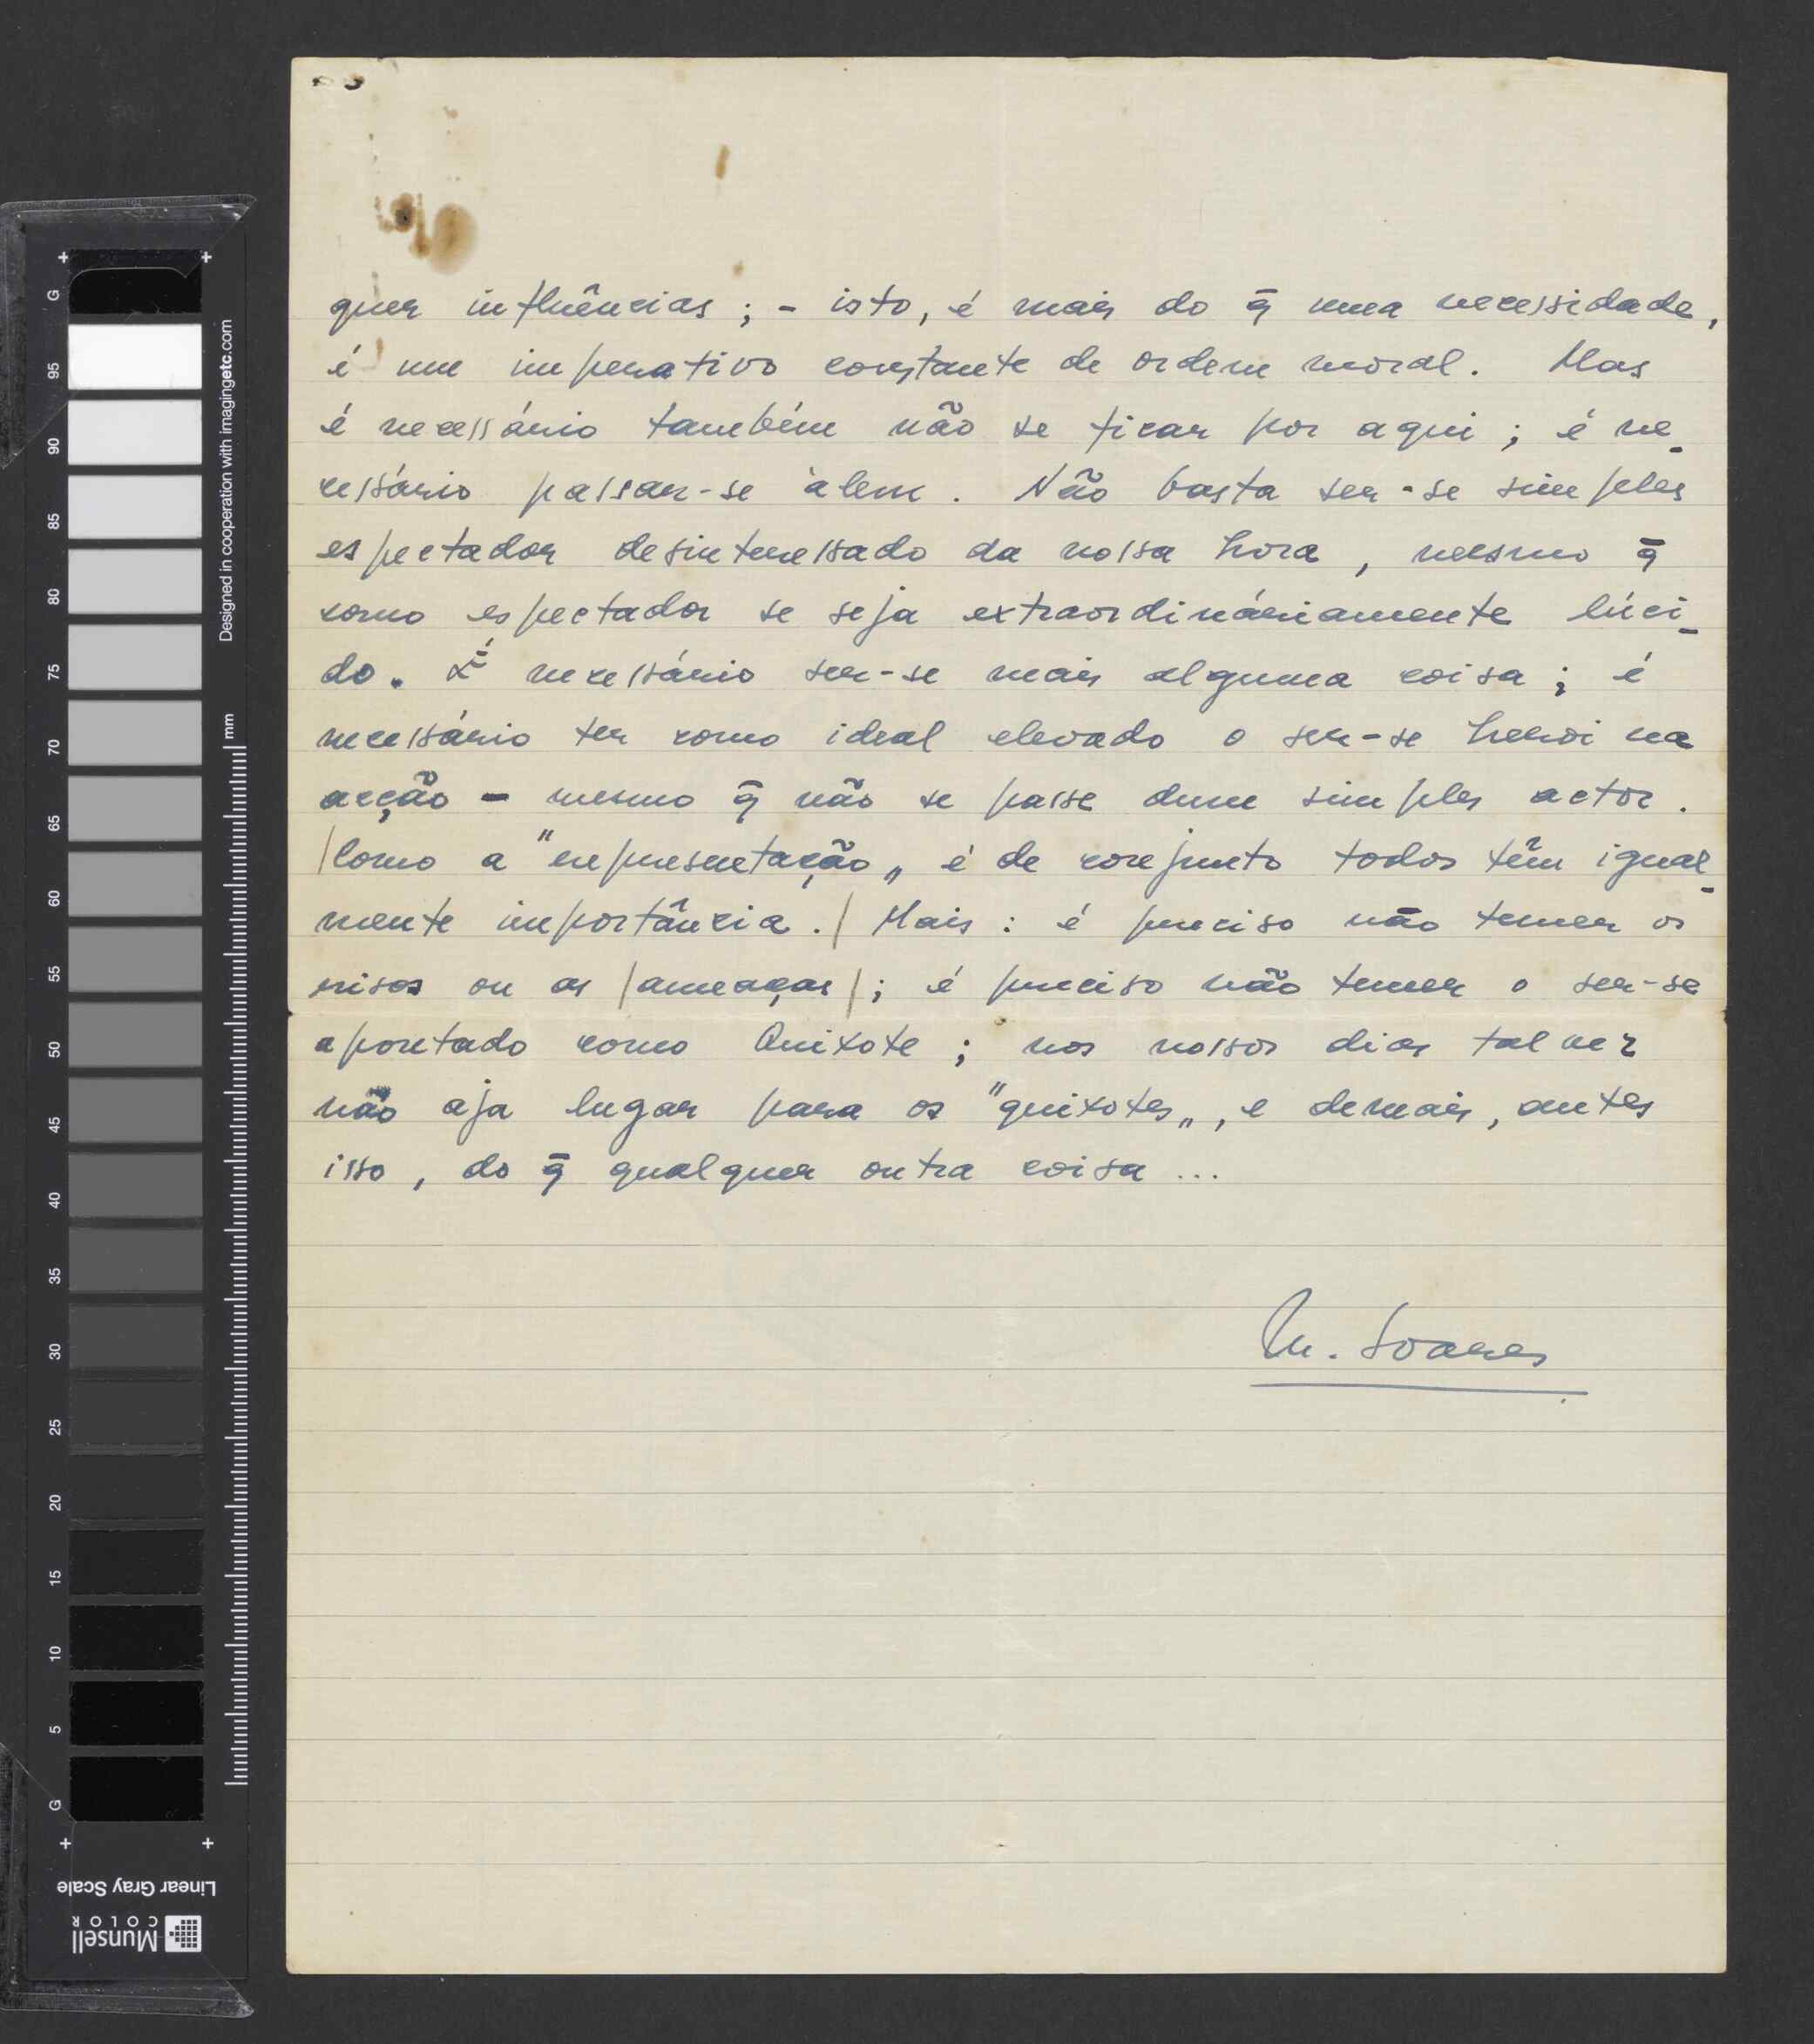 quer influências ; - isto, é mais do q̄ uma necessidade,
é um imperativo constante de ordem moral. Mas
é necessário também não se ficar por aqui ; é ne-
cessário passar-se àlem. Não basta ser-se simples
espectador desinteressado da nossa hora, mesmo q̄
como espectador se seja extraordináriamente lúci-
do. É necessário ser-se mais alguma coisa ; é
necessário ter como ideal elevado o ser-se heroi na
acção - mesmo q̄ não se passe dum simples actor.
/Como a "representação„ é de conjunto todos têm igual-
mente importância./ Mais : é preciso não temer os
risos ou as /ameaças/ ; é preciso não temer o ser-se
apontado como Quixote ; nos nossos dias talvez
não aja lugar para os "quixotes„, e demais, antes
isso, do q̄ qualquer outra coisa ...
M. Soares
G
95
90
85
80
75
70
65
60
55
50
45
40
35
30
25
20
15
10
5
G
mm
Designed in cooperation with imagingetc.com
Linear Gray Scale
Munsell
COLOR